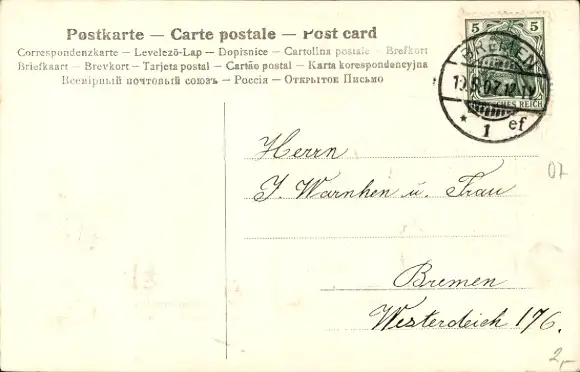 Postkarte – Carte postale – Post card
Correspondenzkarte – Levelező-Lap – Dopisnice – Cartolina postale – Brefkort
Briefkaart – Brevkort – Tarjeta postal – Cartão postal – Karta korespondencyjna
Всемірный почтовый союзъ – Россія – Открытое Письмо
5 5
BREMEN
DEUTSCHES REICH
* 1 ef
Herrn
J. Warnken u. Frau
07
Bremen
Westerdeich 176.
2,-